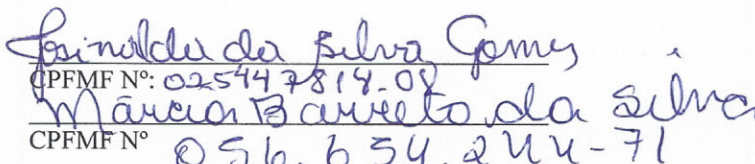 Josinalda da Silva Gomes
CPFMF Nº: 025447814-08
Márcia Barreto da Silva
CPFMF Nº 056.654.244-71